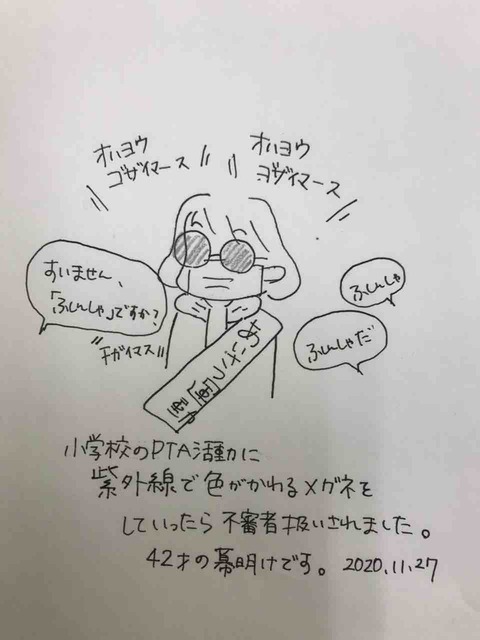 オハヨウ
ゴザイマース
オハヨウ
ゴザイマース
すいません、
「ふしんしゃ」ですか?
チガイマス
ふしんしゃ
ふしんしゃだ
あいさつ運動
小学校のPTA活動に
紫外線で色がかわるメグネを
していったら不審者扱いされました。
42才の幕明けです。 2020.11.27